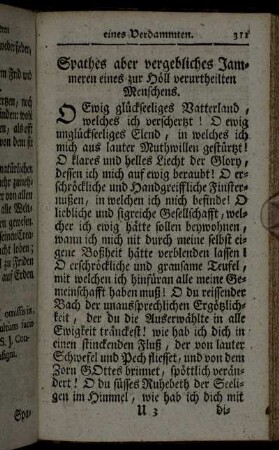 eines Verdammten. 311
Spathes aber vergebliches Jam-
meren eines zur Höll verurtheilten
Menschens.
O Ewig glückseeliges Vatterland,
welches ich verschertzt! O ewig
unglückseeliges Elend, in welches ich
mich aus lauter Muthwillen gestürtzt!
O klares und helles Liecht der Glory,
dessen ich mich auf ewig beraubt! O er-
schröckliche und Handgreiffliche Finster-
nußen, in welchen ich mich befinde! O
liebliche und sigreiche Gesellschafft, wel-
cher ich ewig hätte sollen beywohnen,
wann ich mich nit durch meine selbst ei-
gene Boßheit hätte verblenden lassen!
O erschröckliche und grausame Teufel,
mit welchen ich hinfüran alle meine Ge-
meinschafft haben muß! O du reissender
Bach der unaussprechlichen Ergötzlich-
keit, der du die Auserwählte in alle
Ewigkeit tränckest! wie hab ich dich in
einen stinckenden Fluß, der von lauter
Schwefel und Pech fliesset, und von dem
Zorn GOttes brinnet, spöttlich verän-
dert! O du süsses Ruhebeth der Seeli-
gen im Himmel, wie hab ich dich mit
U 3 di-